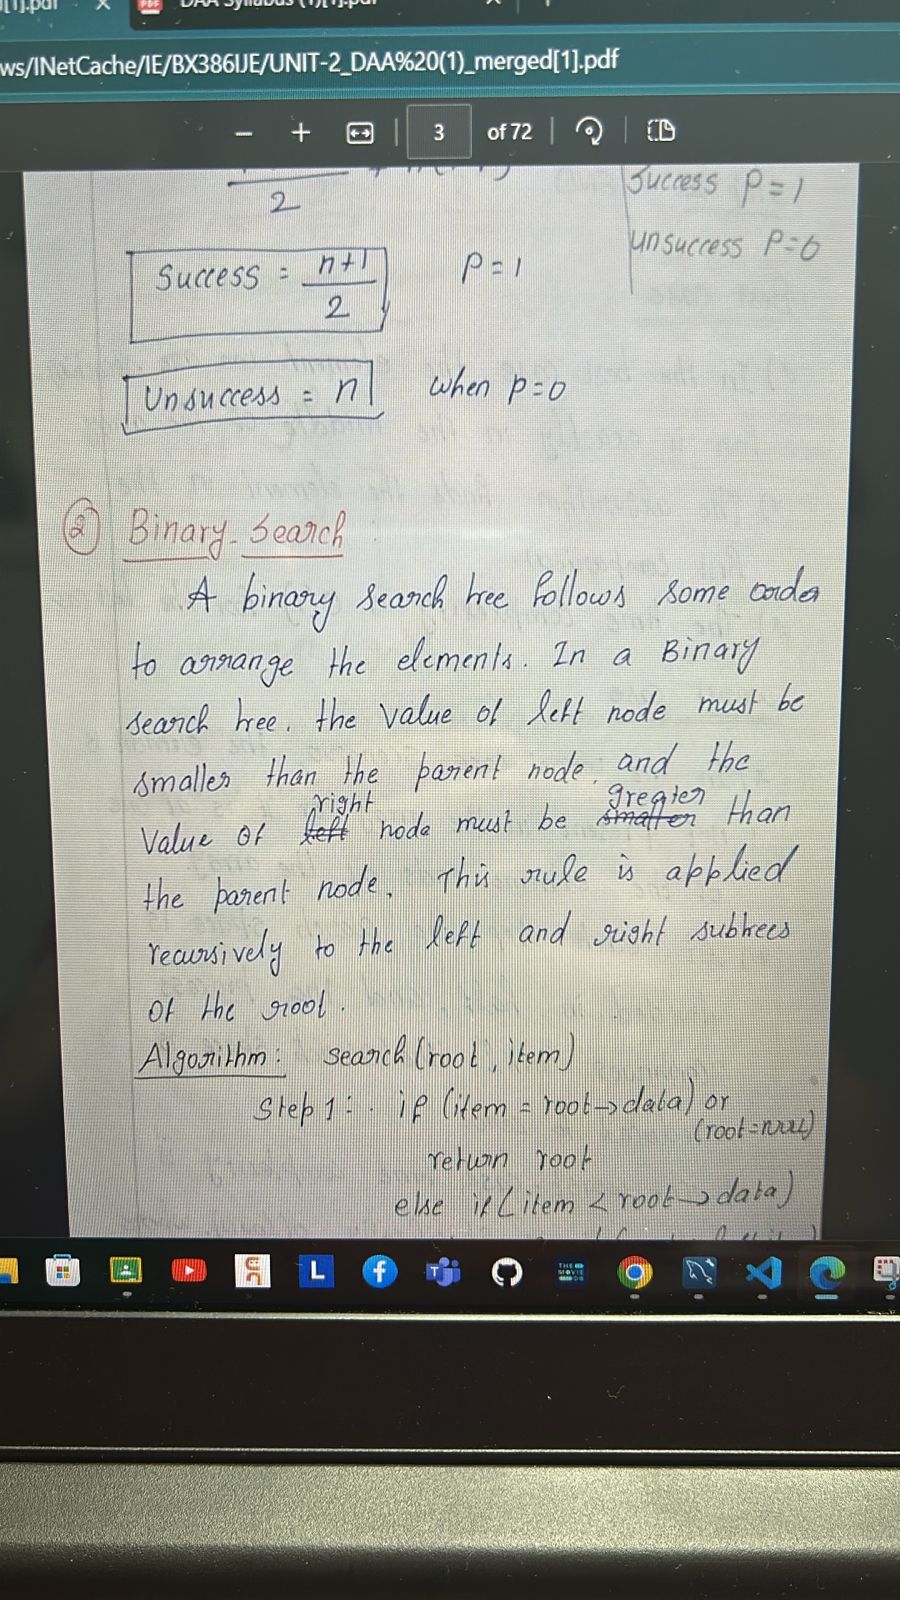 DAA Syllabus (1)[1].pdf
ws/INetCache/IE/BX386IJE/UNIT-2_DAA%20(1)_merged[1].pdf
3 of 72
2
Success P=1
unsuccess P=0
Success = n+1
2
P=1
Unsuccess = n when p=0
② Binary Search
A binary search tree follows some order
to arrange the elements. In a Binary
search tree, the value of left node must be
smaller than the parent node, and the
right greater
Value of left node must be smaller than
the parent node. This rule is applied
recursively to the left and right subtrees
of the root.
Algorithm: search(root, item)
Step 1: . if (item = root→data) or
(root=NULL)
return root
else if(item < root→data)
L
T
THE
MOVIE
DB